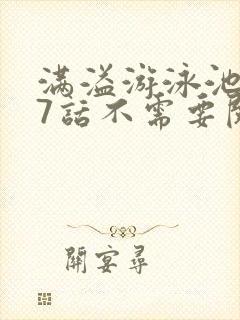 满溢游泳池
7話不需要
開宴尋